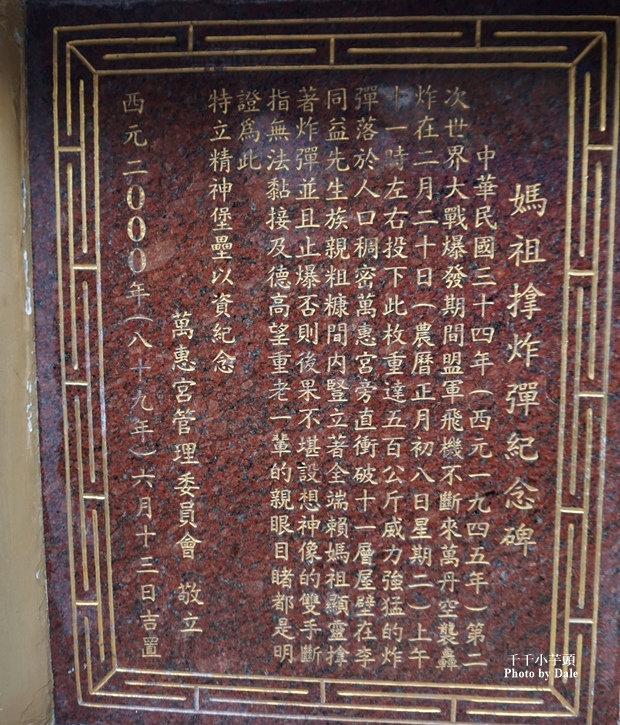 媽祖撐炸彈紀念碑
中華民國三十四年(西元一九四五年)第二
次世界大戰爆發期間盟軍飛機不斷來萬丹空襲轟
炸在二月二十日(農曆正月初八日星期二)上午
十一時左右投下此枚重達五百公斤威力強猛的炸
彈落於人口稠密萬惠宮旁直衝破十一層屋壁在李
同益先生族親粗糠間內豎立著全端賴媽祖顯靈撐
著炸彈並且止爆否則後果不堪設想神像的雙手斷
指無法黏接及德高望重老一輩的親眼目睹都是明
證爲此
特立精神堡壘以資紀念
萬惠宮管理委員會 敬立
西元二000年(八十九年)六月十三日吉置
千千小芋頭
Photo by Dale